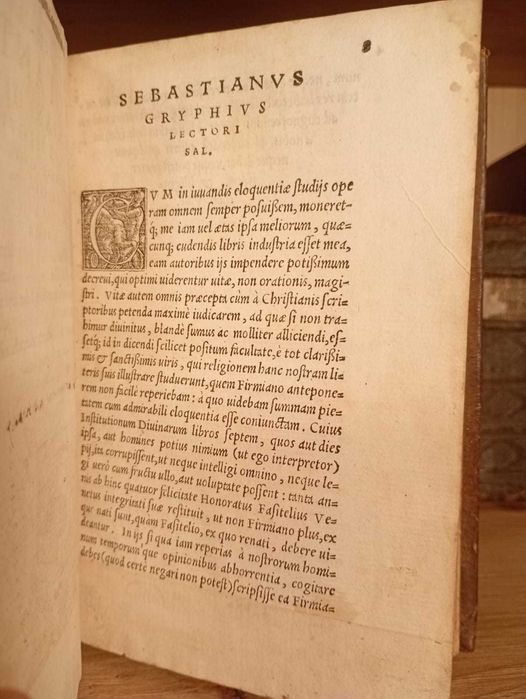 SEBASTIANVS
GRYPHIVS
LECTORI
SAL.
CVM in iuuandis eloquentiæ ſtudijs ope
ram omnem ſemper poſuiſſem, moneret=
q́; me iam uel ætas ipſa meliorum, quæ=
cunq; cudendis libris induſtria eſſet mea,
eam autoribus ijs impendere potißimum
decreui, qui optimi uiderentur uitæ, non orationis, magi=
ſtri. Vitæ autem omnis præcepta cùm à Chriſtianis ſcri=
ptoribus petenda maximè iudicarem, ad quæ ſi non tra=
himur diuinitus, blandè ſumus ac molliter alliciendi, eſ=
ſetq́; id in dicendi ſcilicet poſitum facultate, è tot clarißi=
mis & ſanctißimis uiris, qui religionem hanc noſtram li=
teris ſuis illuſtrare ſtuduerunt, quem Firmiano antepone=
rem non facilè reperiebam: à quo uidebam ſummam pie=
tatem cum admirabili eloquentia eſſe coniunctam. Cuius
Inſtitutionum Diuinarum libros ſeptem, quos aut dies
ipſa, aut homines potius nimium (ut ego interpretor)
pij, ita corrupiſſent, ut neque intelligi omnino, neque le=
gi uerò cum fructu ullo, aut uoluptate poſſent: tanta an=
nis ab hinc quatuor felicitate Honoratus Faſitelius Ve=
netus integritati ſuæ reſtituit, ut non Firmiano plus, ex
quo nati ſunt, quàm Faſitelio, ex quo renati, debere ui=
deantur. In ijs ſi qua iam reperias à noſtrorum homi=
num temporumq́ue opinionibus abhorrentia, cogitare
debes (quod certè negari non poteſt) ſcripſiſſe ea Firmia=